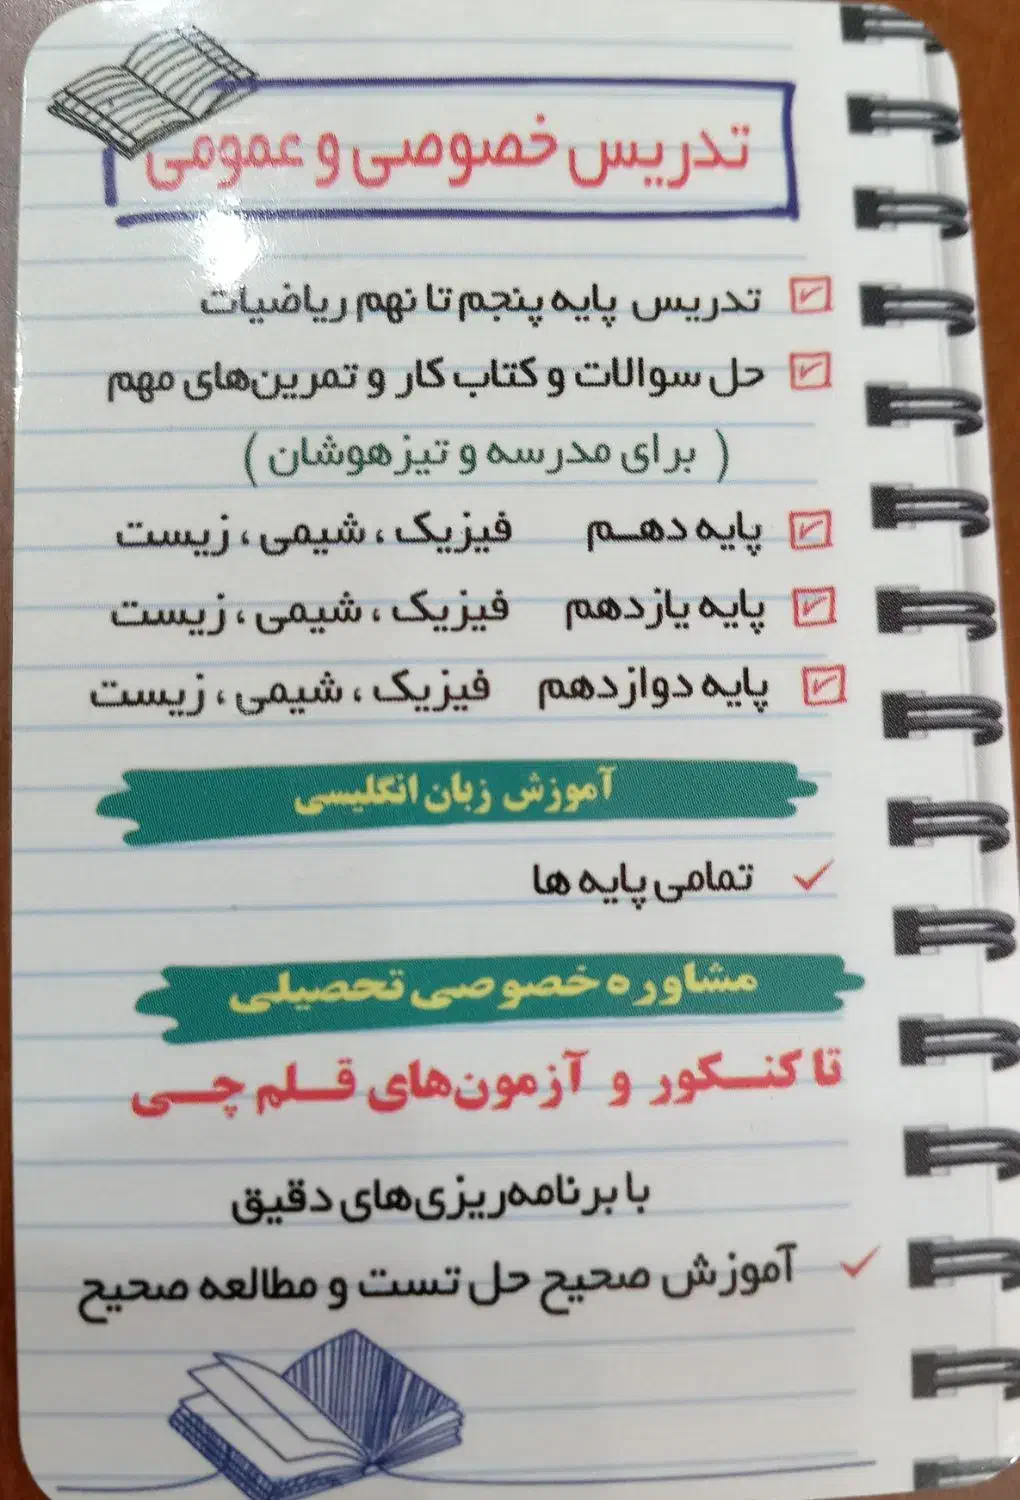 تدریس خصوصی و عمومی
تدریس پایه پنجم تا نهم ریاضیات
حل سوالات و کتاب کار و تمرین‌های مهم
( برای مدرسه و تیزهوشان )
پایه دهم فیزیک ، شیمی ، زیست
پایه یازدهم فیزیک ، شیمی ، زیست
پایه دوازدهم فیزیک ، شیمی ، زیست
آموزش زبان انگلیسی
تمامی پایه ها
مشاوره خصوصی تحصیلی
تا کنکور و آزمون‌های قلم چی
با برنامه‌ریزی‌های دقیق
آموزش صحیح حل تست و مطالعه صحیح